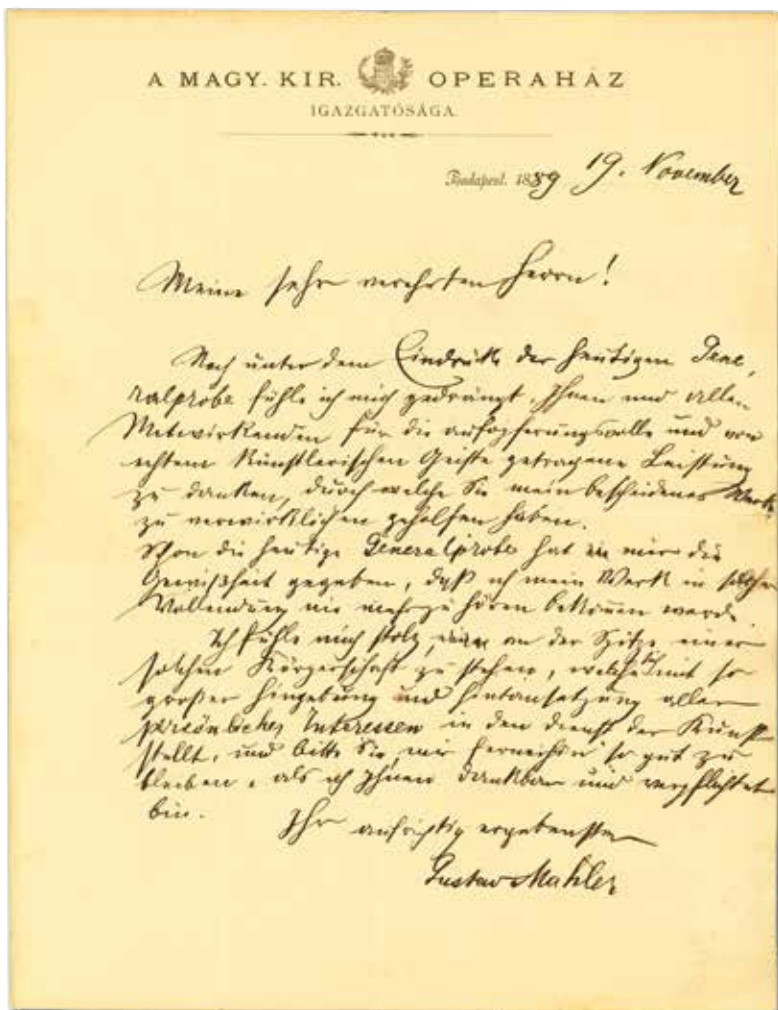 A MAGY. KIR. OPERAHÁZ
IGAZGATÓSÁGA.
Budapest. 1889 19. November
Meine sehr verehrten Herrn!
Noch unter dem Eindruck der heutigen Gene,
ralprobe fühle ich mich gedrängt, Ihnen und allen
Mitwirkenden für die aufopferungsvolle und von
echtem künstlerischen Geiste getragene Leistung
zu danken, durch welche Sie mein bescheidenes Werk
zu verwirklichen geholfen haben.
Schon die heutige Generalprobe hat in mir die
Gewißheit gegeben, daß ich mein Werk in solcher
Vollendung nie mehr zu hören bekommen werde
Ich fühle mich stolz, an der Spitze einer
solchen Körperschaft zu stehen, welche sich mit so
großer Hingebung und Hintansetzung aller
persönlicher Interessen in den Dienst der Kunst
stellt, und bitte Sie, mir fernerhin so gut zu
bleiben, als ich Ihnen dankbar und verpflichtet
bin.
Ihr aufrichtig ergebenster
Gustav Mahler